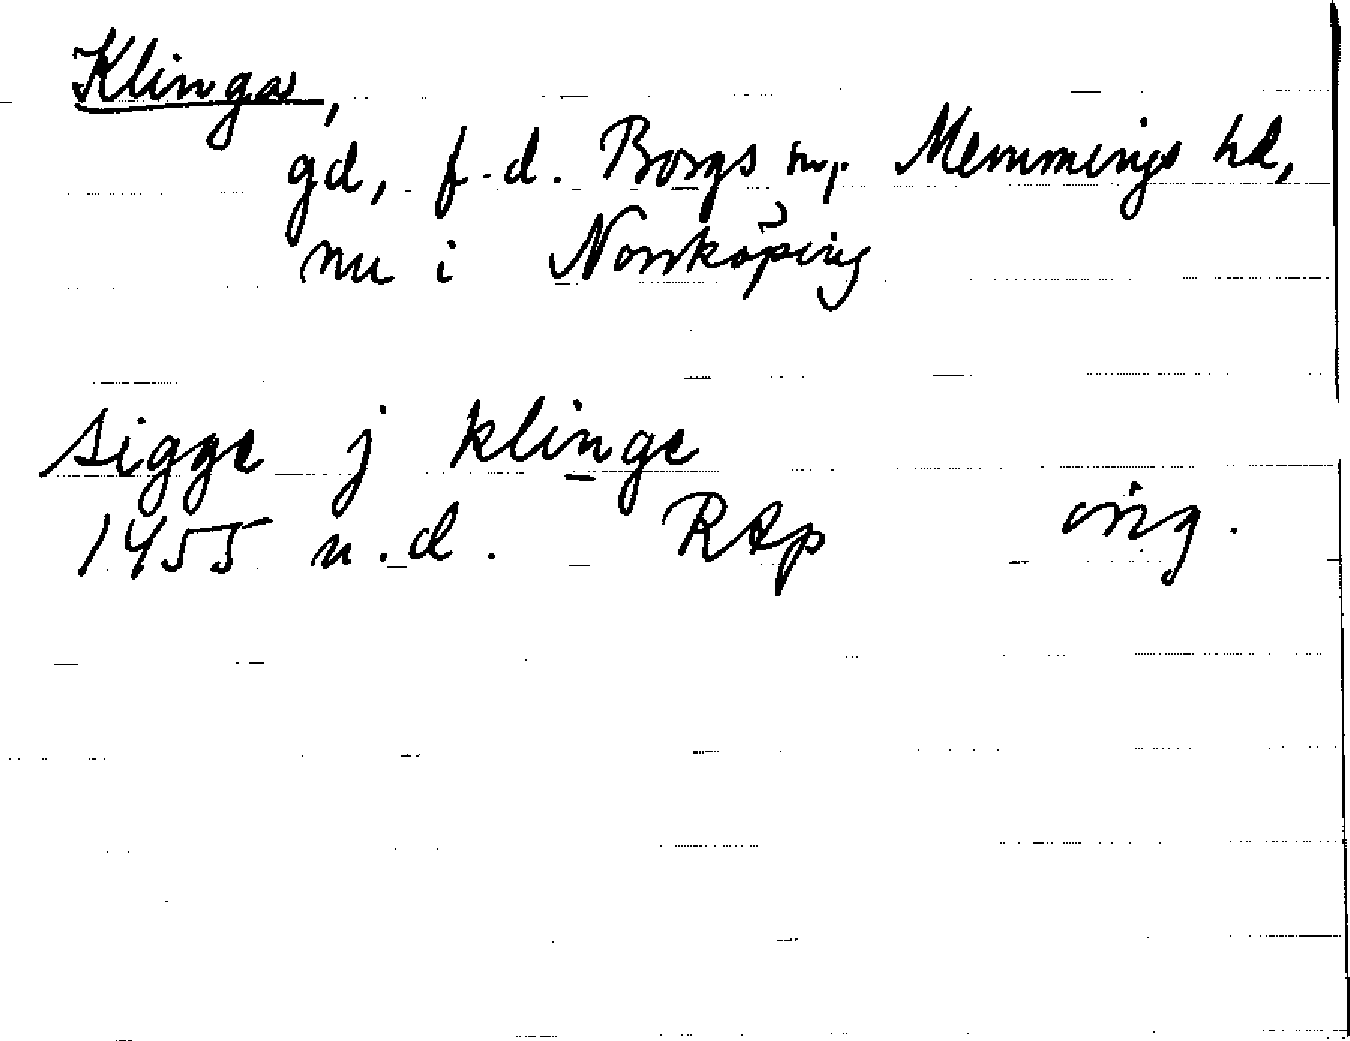 Klinga,
gd, f.d. Borgs sn, Memmings hd,
nu i Norrköping
sigge j klinge
1455 u.d. RAp orig.